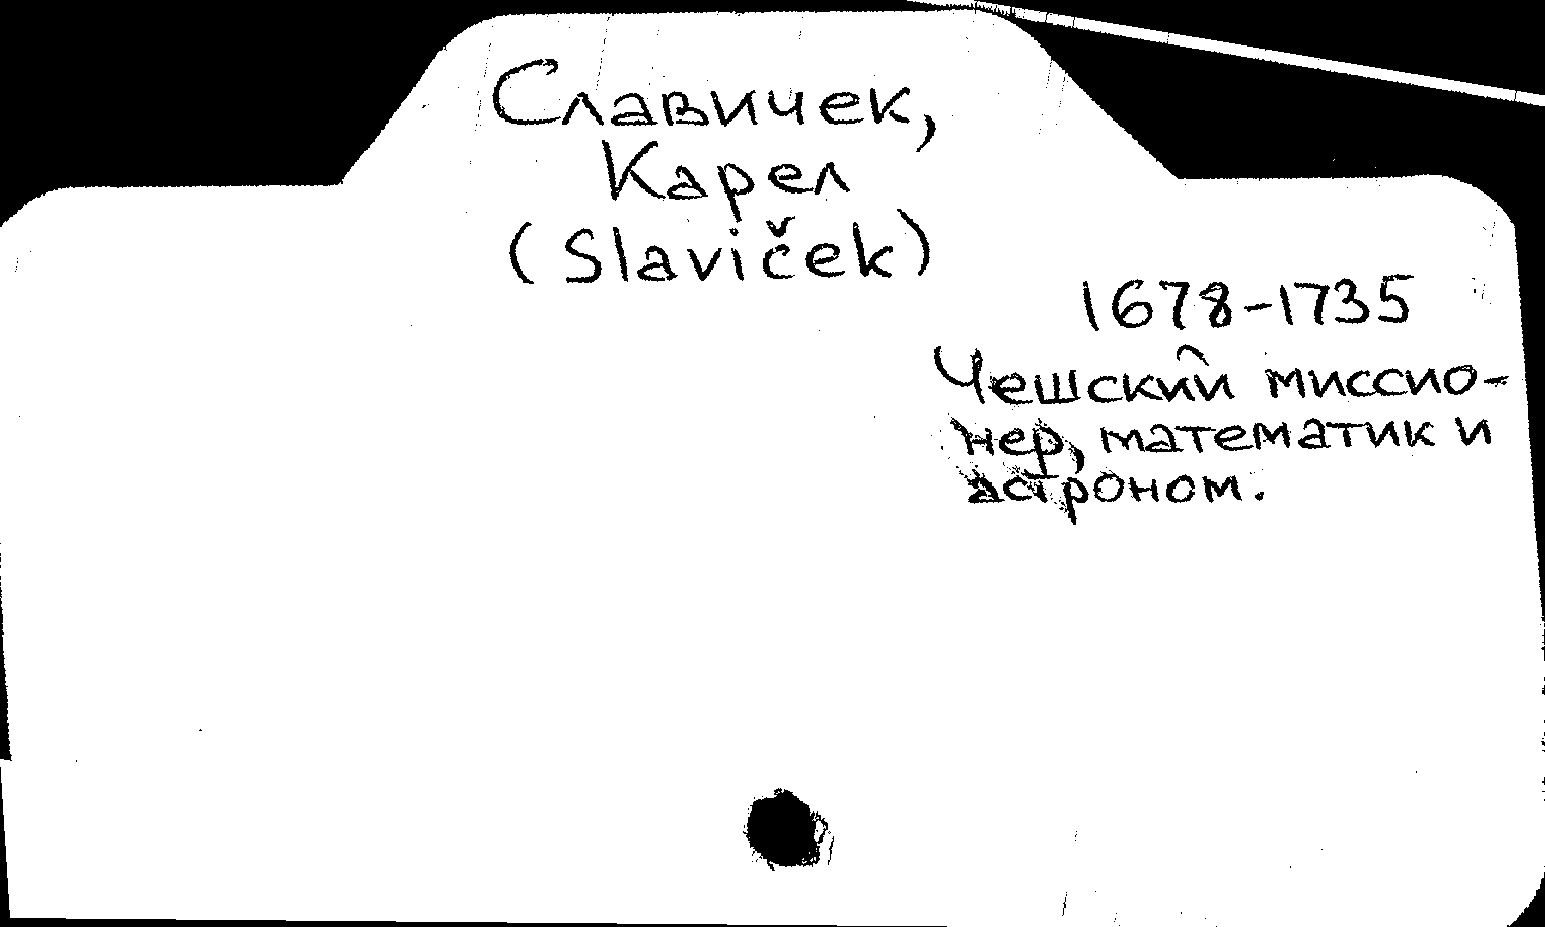 Славичек,
Карел
(Slaviček)
1678-1735
Чешский миссио-
нер, математик и
астроном.